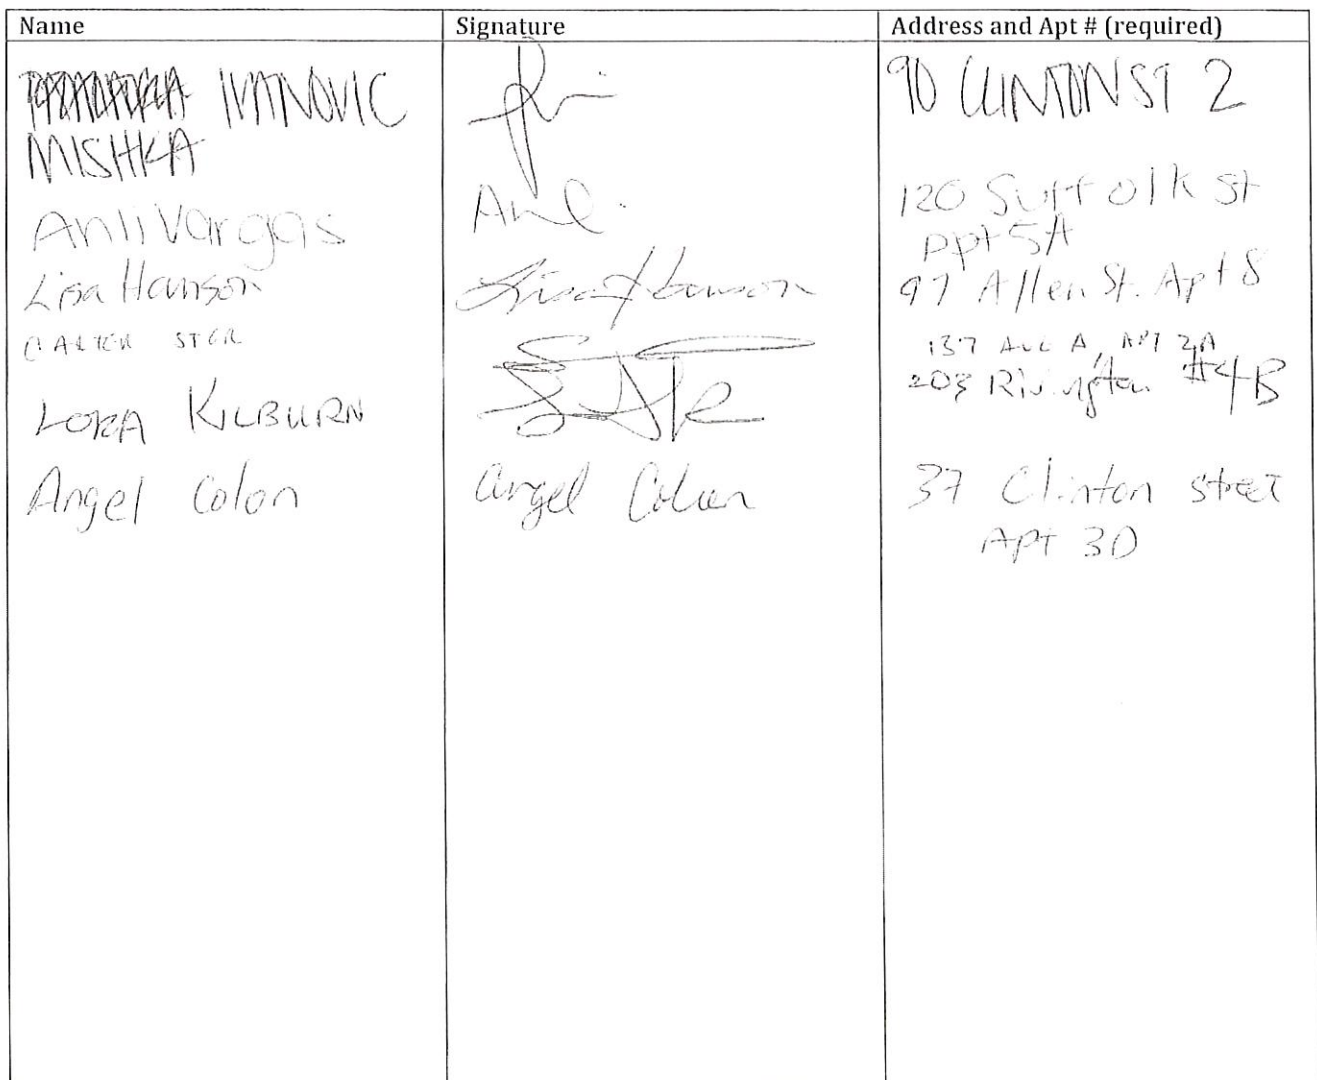 Name Signature Address and Apt # (required)
IVANOVIC 90 CLINTON ST 2
MISHKA
Anli Vargas Anl. 120 Suffolk St
Apt 5A
Lisa Hanson Lisa Hanson 97 Allen St. Apt 8
CARTER 137 AVE A, APT 2A
LORA KILBURN 203 Rivington #4B
Angel Colon Angel Colon 37 Clinton street
APT 3D